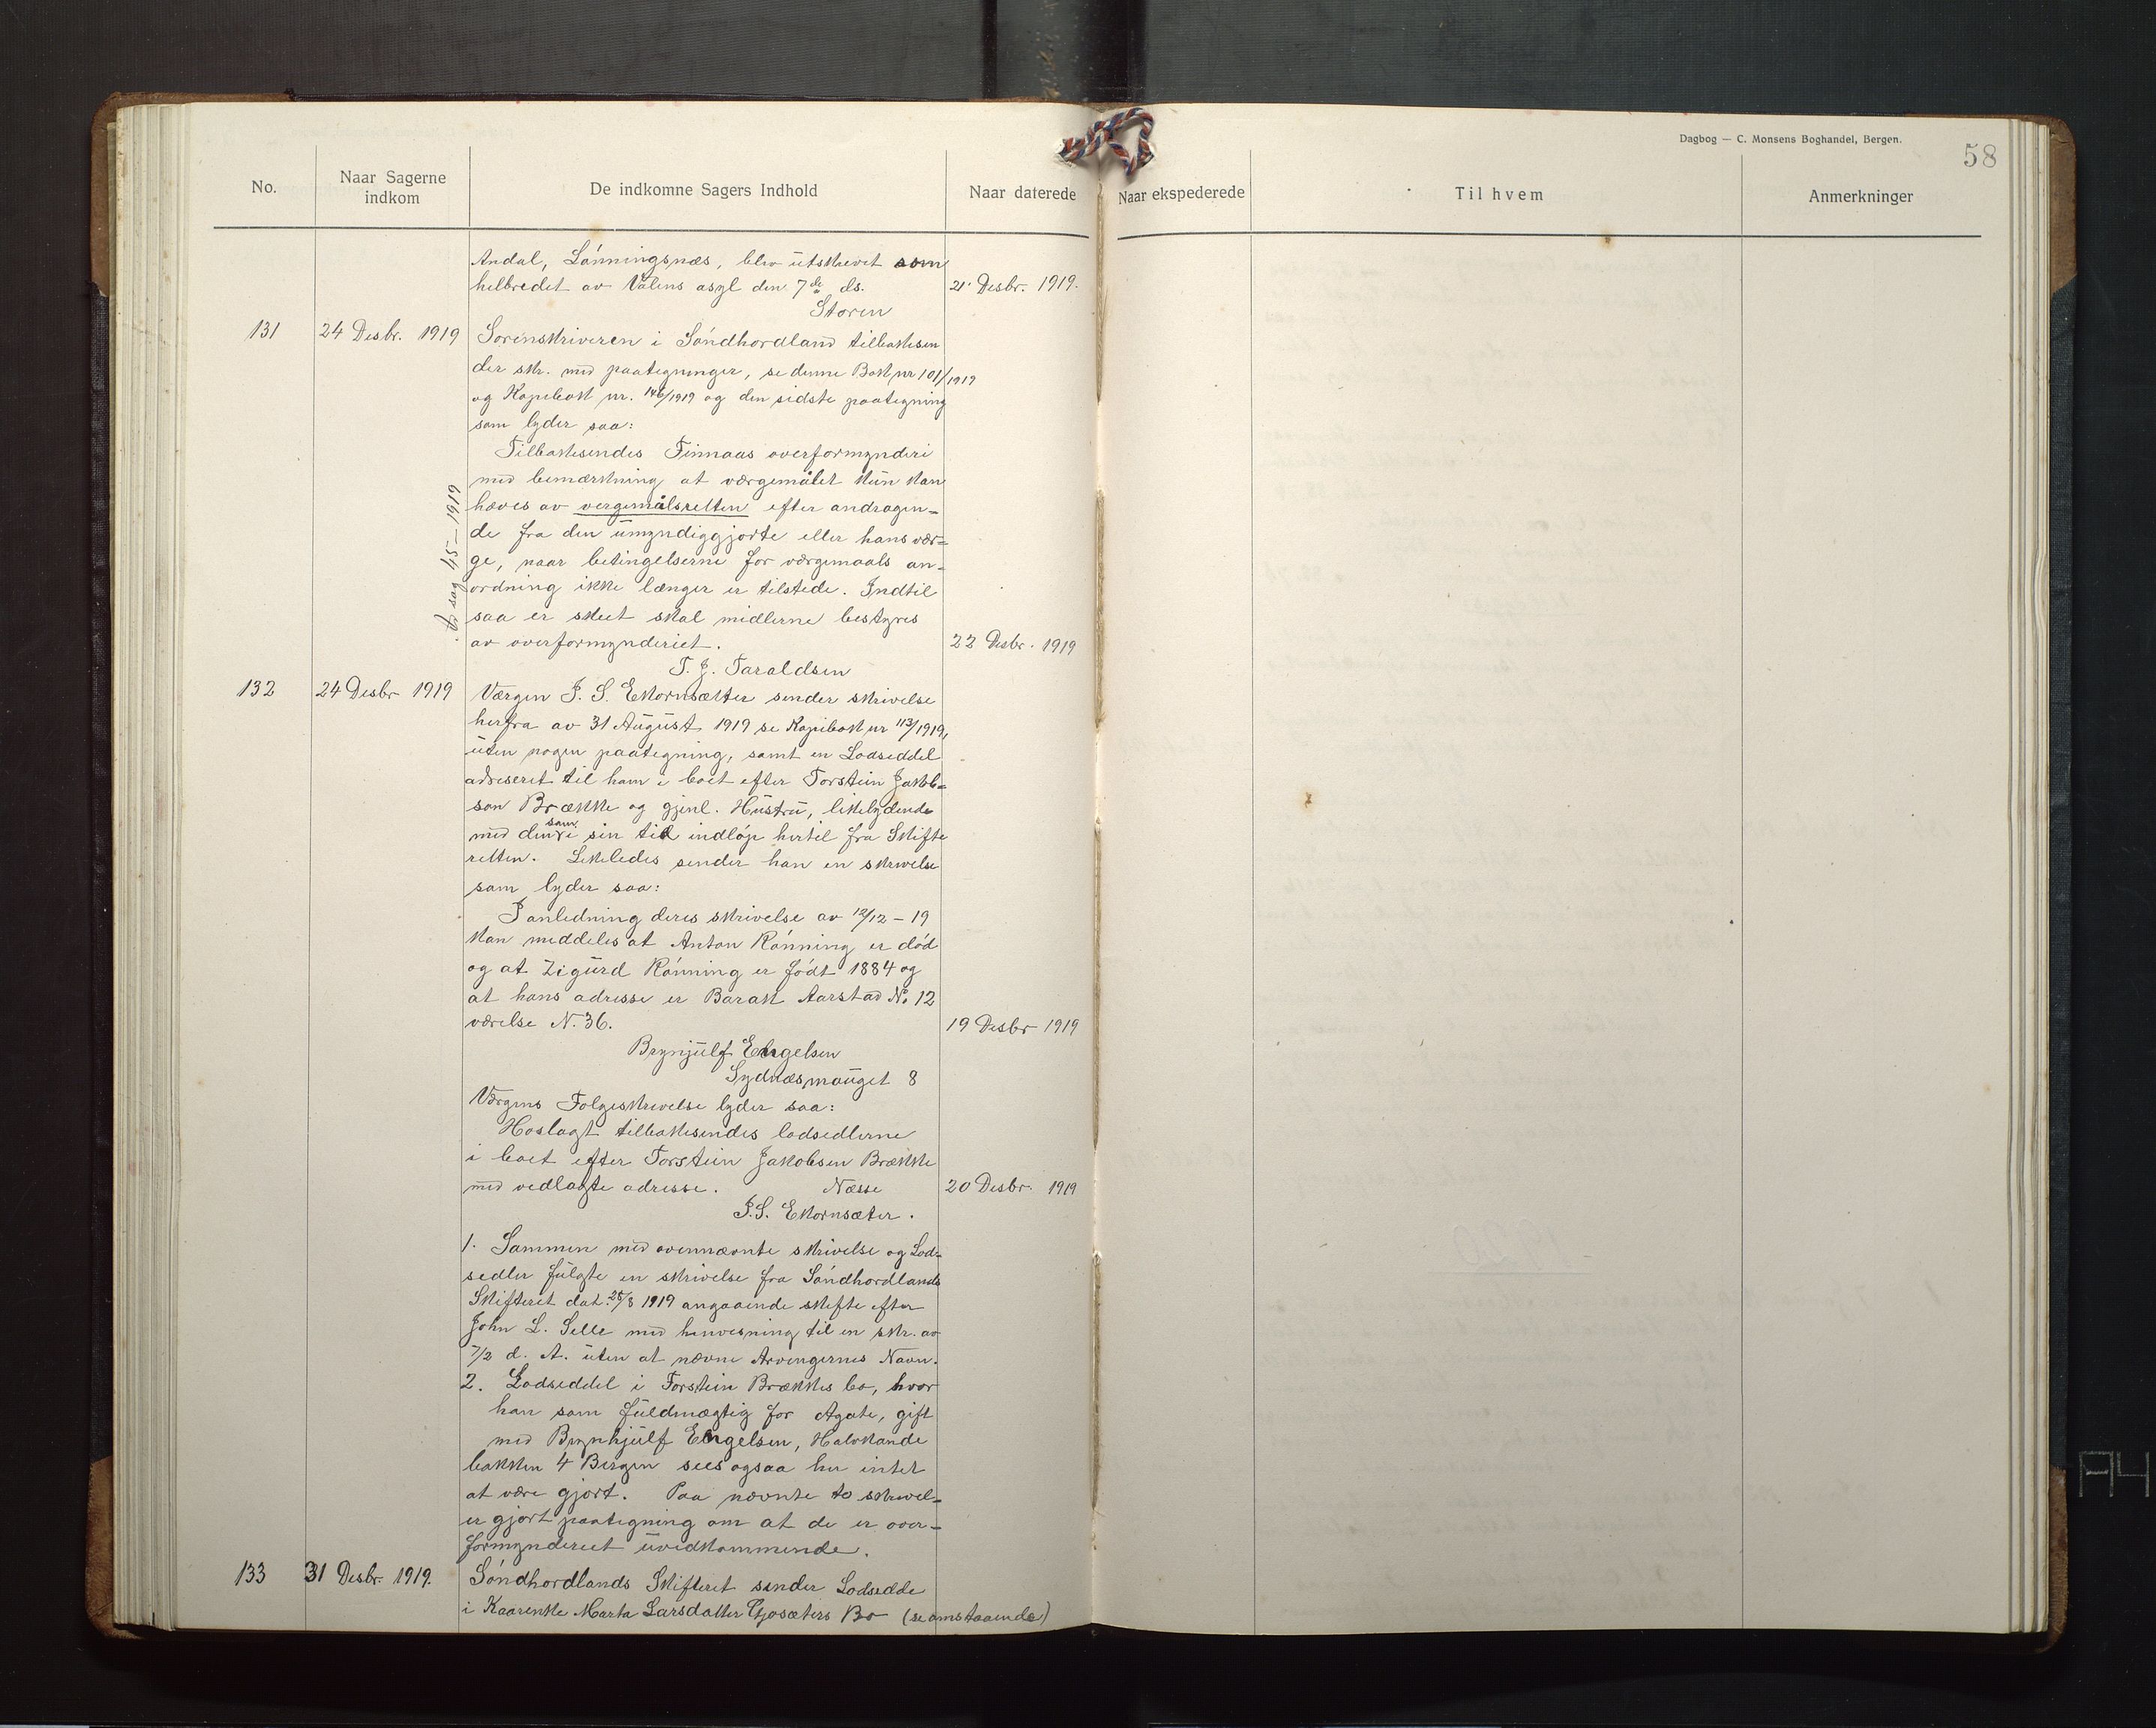 Dagbog — C. Monsens Boghandel, Bergen.
58
No.
Naar Sagerne indkom
De indkomne Sagers Indhold
Naar daterede
Naar ekspederede
Til hvem
Anmerkninger
Andal, Lónningsnæs, blev utskrevet som
helbredet av Valens asyl den 7de ds. 21' Desbr. 1919.
Storen
131 24 Desbr. 1919 Sorenskriveren i Sóndhordland tilbakesen
der skr. med paategninger, se denne Bok nr 101/1919
og Kopibok nr. 146/1919 og den sidste paategning
som lyder saa:
Tilbakesendes Finnaas overformynderi
med bemærkning at værgemålet kun kan
hæves av vergemålsretten efter andragen=
de fra den umyndiggjorte eller hans vær=
ge, naar betingelserne for værgemaals an=
ordning ikke længer er tilstede. Indtil
saa er skeet skal midlerne bestyres
av overformynderiet. 22 Desbr. 1919
sag 45-1919
T. J. Taraldsen
132 24 Desbr 1919 Værgen J. S. Ekornsætter sender skrivelse
herfra av 31 August 1919 se Kopibok nr 113/1919,
uten nogen paategning, samt en Lodseddel
adreseret til ham i boet efter Torstein Jakob=
son Brække og gjenl. Hustru, likelydende
med denne som i sin tid indlóp hertil fra Skifte
retten. Likeledes sender han en skrivelse
som lyder saa:
I anledning deres skrivelse av 12/12 - 19
kan meddeles at Anton Rónning er dód
og at Zigurd Rónning er fódt 1884 og
at hans adresse er Barak Aarstad No 12
værelse N. 36. 19 Desbr 1919
Brynjulf Engelsen
Sydnæsmauget 8
Værgens Folgeskrivelse lyder saa:
Hoslagt tilbakesendes lodsedlerne
i boet efter Torstein Jakobsen Brække
med vedlagte adresse. Næsse 20 Desbr. 1919
J.S. Ekornsæter.
1. Sammen med ovennævnte skrivelse og Lod=
sedler fulgte en skrivelse fra Sóndhordlands
Skifteret dat. 25/8 1919 angaaende skifte efter
John L. Selle med henvisning til en skr. av
7/2 d. A. uten at nævne Arvingernes Navn.
2. Lodseddel i Torstein Brækkes bo, hvor
han som fuldmægtig for Agate, gift
med Brynhjulf Engelsen, Halvkande
bakken 4 Bergen sees ogsaa her intet
at være gjort. Paa nævnte to skrivel=
er gjort paategning om at de er over=
formynderiet uvedkommende.
133 31 Desbr. 1919. Sóndhordlands Skifteret sender Lodsedde
i Kaarenke Marta Larsdatter Bo (se omstaaende)